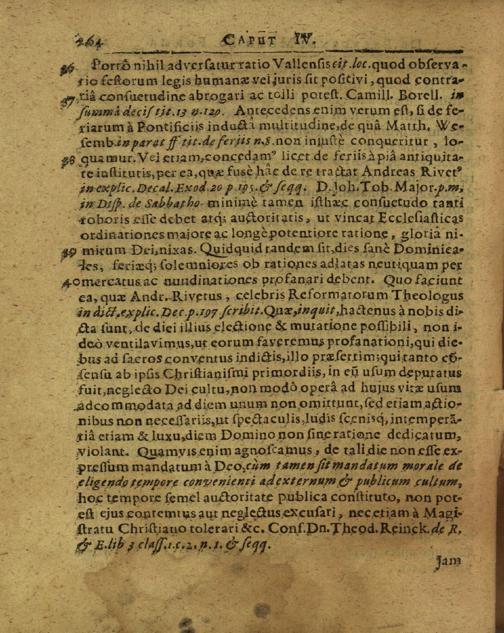 264 CAPUT IV.
36 Porrò nihil adversatur ratio Vallensis cit. loc. quod observa-
tio festorum legis humanæ vel juris sit positivi, quod contra-
37 riâ consuetudine abrogari ac tolli potest. Camill. Borell. in
summâ decis tit. 13 n. 120. Antecedens enim verum est, si de fe-
riarum à Pontificiis inductâ multitudine, de quâ Matth. We-
semb. in parat ff tit. de feriis n. 8. non injustè conqueritur, lo-
38 quamur. Vel etiam, concedamꝰ licet de feriis à piâ antiquita-
te institutis, per ea, quæ fusè hâc de re tractat Andreas Rivetꝰ
in explic. Decal. Exod. 20 p. 195. & seqq. D. Joh. Tob. Major. p. m.
in Disp. de Sabbatho minimè tamen isthæc consuetudo tanti
roboris esse debet atq; auctoritatis, ut vincat Ecclesiasticas
ordinationes majore ac longè potentiore ratione, gloriâ ni-
39 mirum Dei, nixas. Quidquid tandem sit, dies sanè Dominica-
les, feriæq; solemniores ob rationes adlatas neutiquam per
40 mercatus ac nundinationes profanari debent. Quo faciunt
ea, quæ Andr. Rivetus, celebris Reformatorum Theologus
in dict. explic. Dec. p. 197 scribit. Quæ, inquit, hactenus à nobis di-
cta sunt, de diei illius electione & mutatione possibili, non i-
deò ventilavimus, ut eorum faveremus profanationi, qui die-
bus ad sacros conventus indictis, illo præsertim, qui tanto cõ-
sensu ab ipsis Christianismi primordiis, in eũ usum deputatus
fuit, neglecto Dei cultu, non modò operâ ad hujus vitæ usum
adcommodata ad diem unum non omittunt, sed etiam actio-
nibus non necessariis, ut spectaculis, ludis scenisq; intemperã-
tiâ etiam & luxu, diem Domino non sine ratione dedicatum,
violant. Quamvis enim agnoscamus, de tali die non esse ex-
pressum mandatum à Deo, cùm tamen sit mandatum morale de
eligendo tempore convenienti ad externum & publicum cultum,
hoc tempore semel auctoritate publica constituto, non pot-
est ejus contemtus aut neglectus excusari, nec etiam à Magi-
stratu Christiano tolerari &c. Conf. Dn. Theod. Reinck. de R.
& E. lib 3 class. 1. c. 2. n. 1. & seqq.
Jam